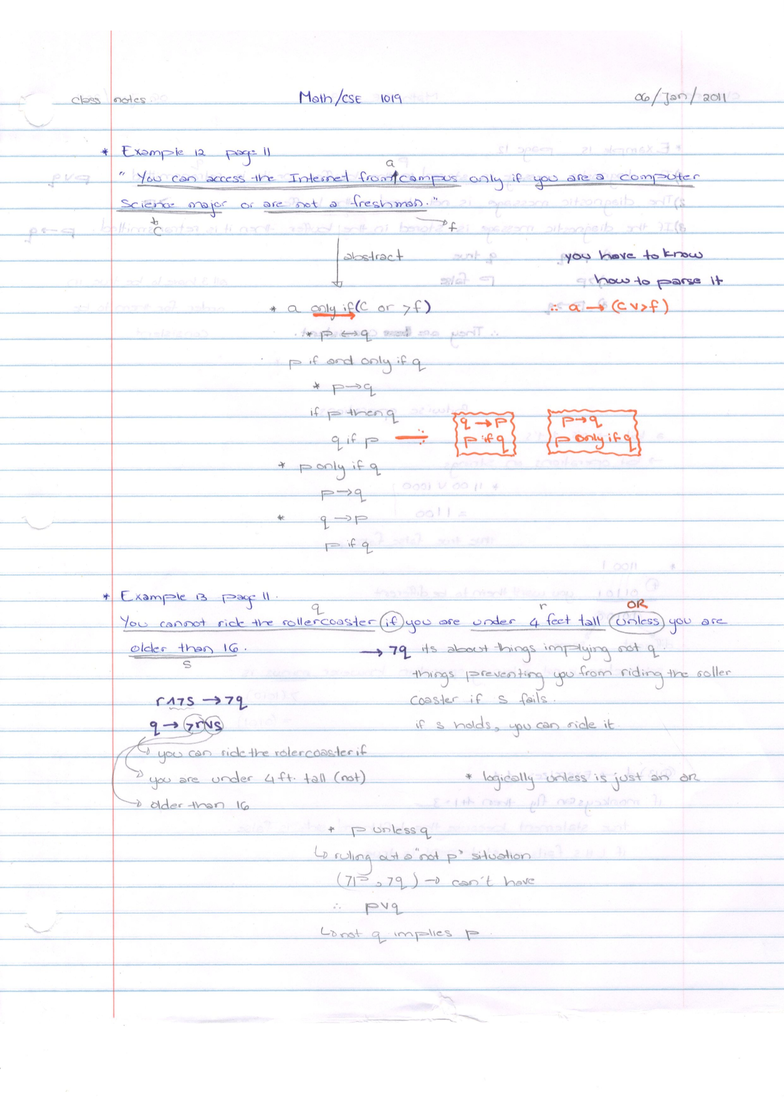 class notes Math/CSE 1019 06/Jan/2011
* Example 12 page 11
a
" You can access the Internet from campus only if you are a computer
Science major or are not a freshman."
c f
abstract you have to know
how to parse it
* a only if (c or ¬f) ∴ a → (c ∨ ¬f)
* p ↔ q
p if and only if q
* p → q
if p then q q → p p → q
q if p p if q p only if q
* p only if q
p → q
* q → p
p if q
* Example 13 page 11.
q r OR
You cannot ride the rollercoaster if you are under 4 feet tall unless you are
older than 16. → ¬q its about things implying not q
s things preventing you from riding the roller
r ∧ ¬s → ¬q coaster if s fails.
q → ¬r ∨ s if s holds, you can ride it
you can ride the rolercoaster if
you are under 4 ft. tall (not) * logically unless is just an or
older than 16
* p unless q
↳ ruling out a "not p" situation
(¬p, ¬q) → can't have
∴ p ∨ q
↳ not q implies p